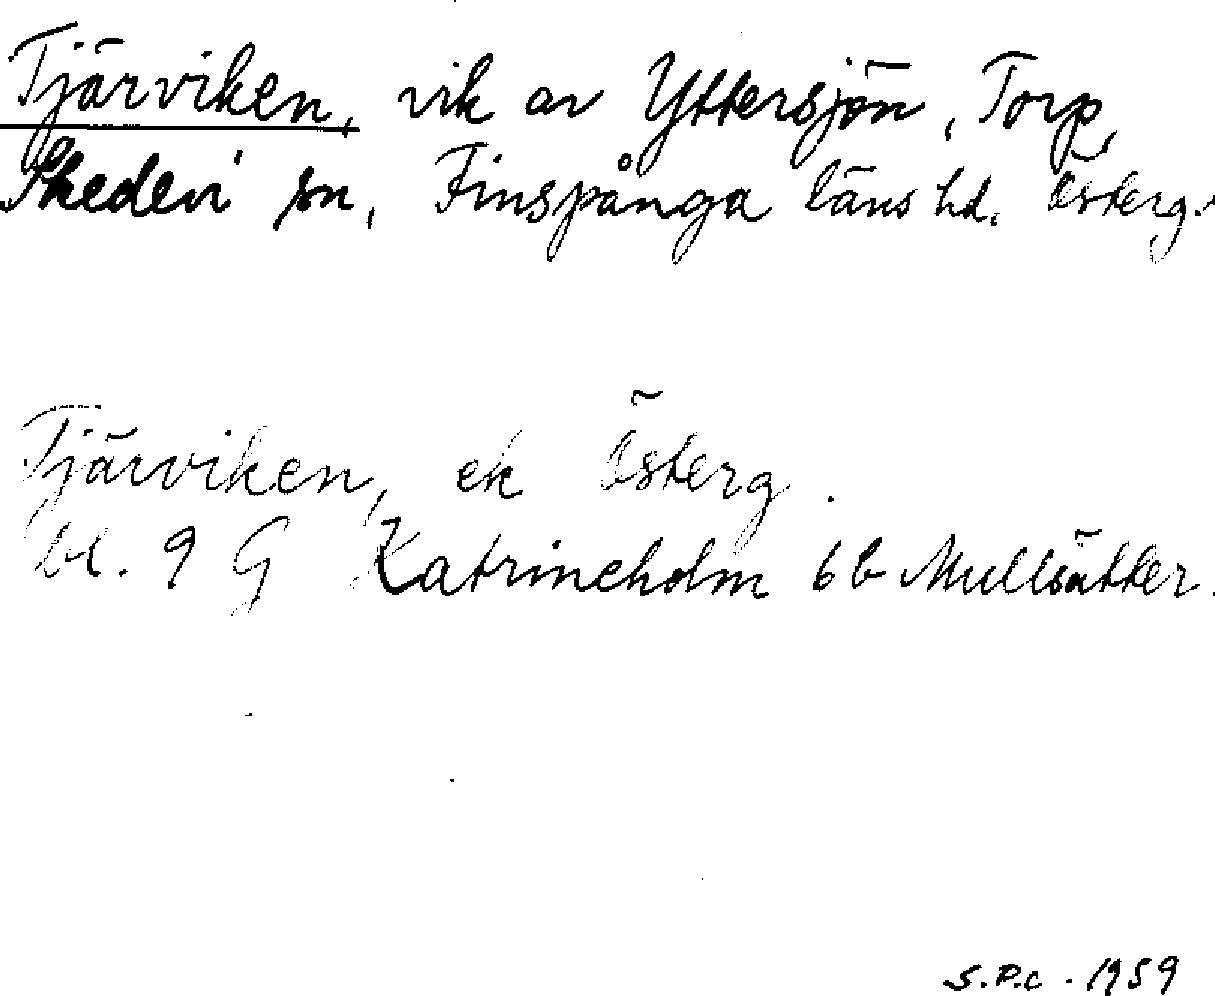 Tjärviken, vik av Yttersjön, Torp,
Skedevi sn, Finspånga läns hd. Österg.
Tjärviken, ek Österg.
bl. 9 G Katrineholm 6b Mullsätter.
S.P.c. 1959